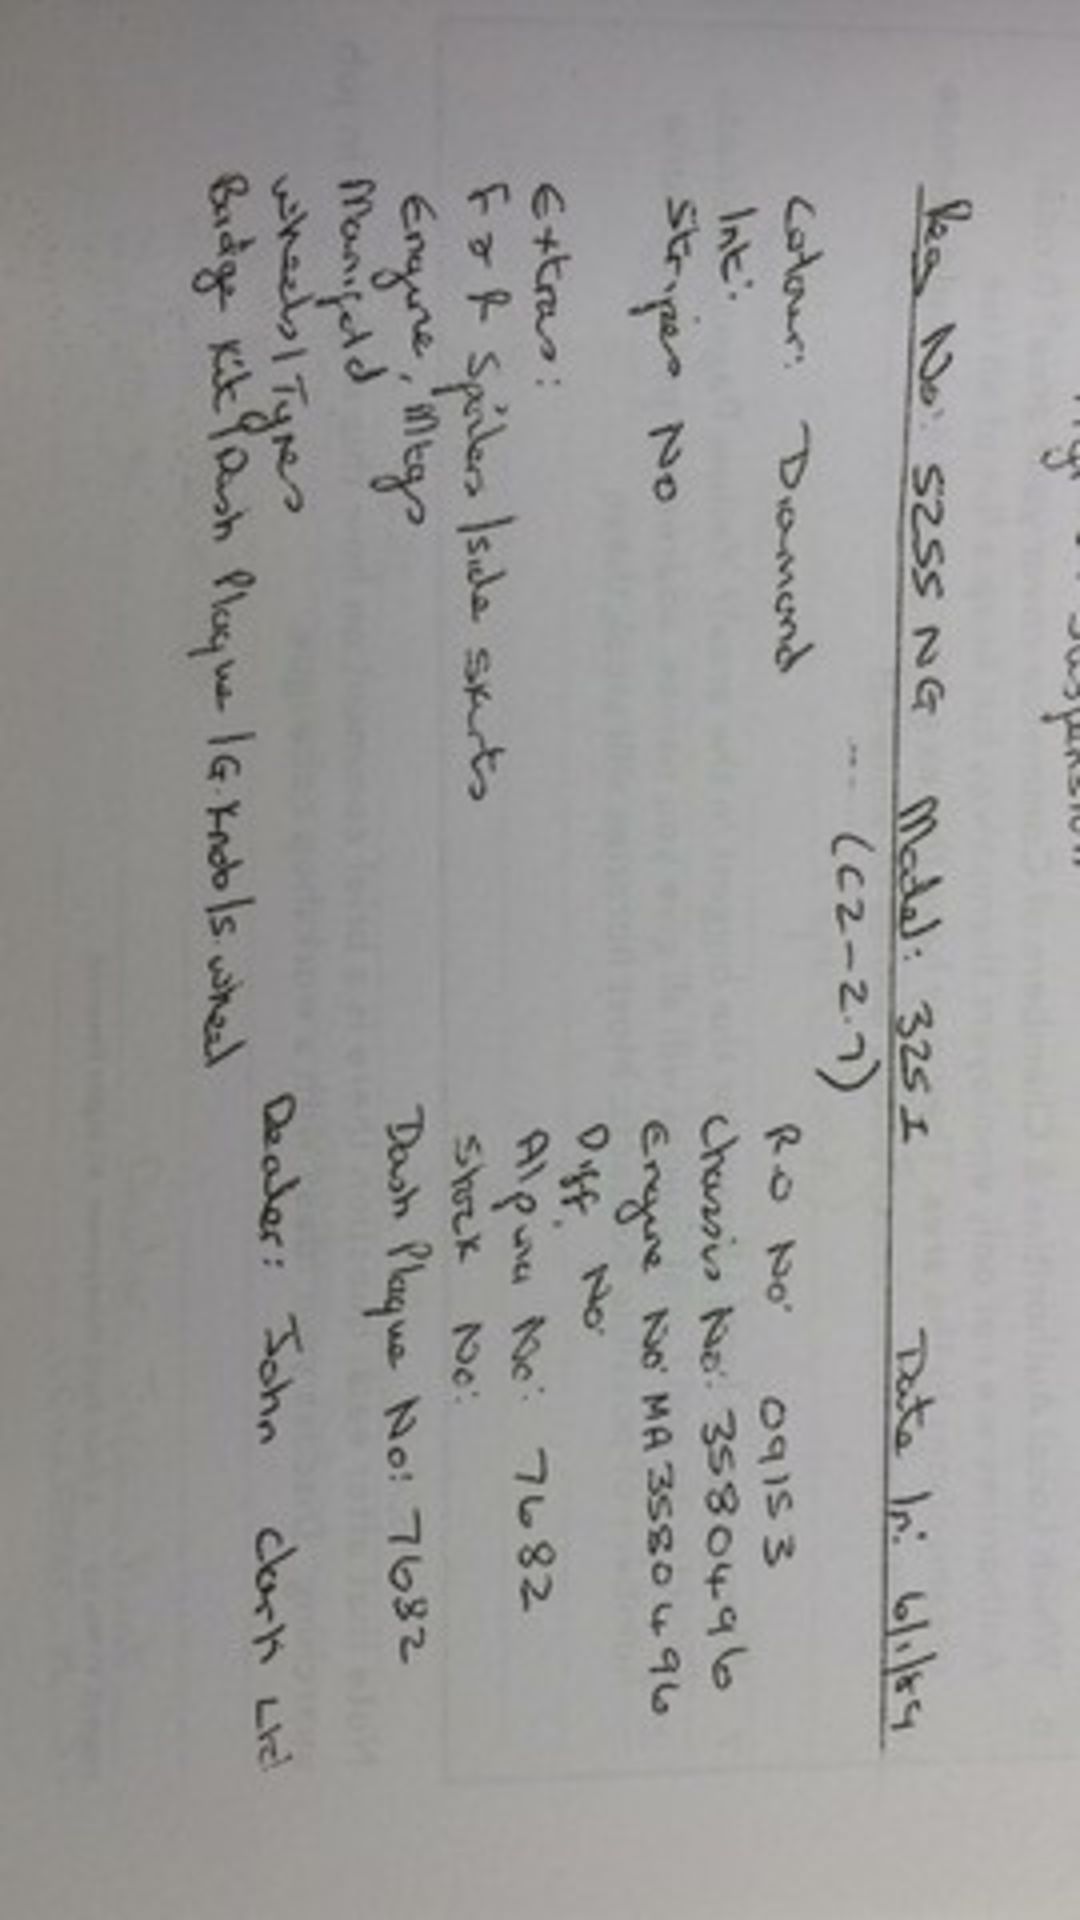 Suspension
Reg No: 5255 NG Model: 325I Date In: 6/1/89
(C2-2.7)
Colour: Diamond
Int:
Stripes No
Extras:
F & R Spoilers/Side Skirts
Engine, Mtgs
Manifold
Wheels/Tyres
Badge Kit/Dash Plaque/G.Knob/S.Wheel
RO No: 09153
Chassis No: 3580496
Engine No: MA3580496
Diff. No:
Alpina No: 7682
Stock No:
Dash Plaque No: 7682
Dealer: John Clark Ltd